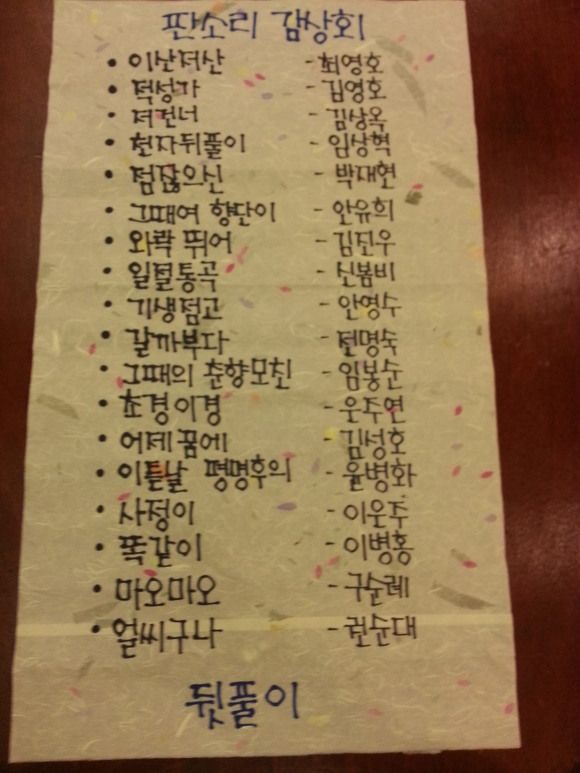 판소리 감상회
• 이산저산 - 최영호
• 적성가 - 김영호
• 저건너 - 김상옥
• 천자뒤풀이 - 임상혁
• 점잖으신 - 박재현
• 그때여 향단이 - 안유희
• 와락 뛰어 - 김진우
• 일절통곡 - 신봄비
• 기생점고 - 안영수
• 갈까부다 - 전명숙
• 그때의 춘향모친 - 임봉순
• 초경이경 - 운주연
• 어제꿈에 - 김성호
• 이튿날 평명후의 - 율병화
• 사정이 - 이운주
• 똑같이 - 이병홍
• 마오마오 - 구순례
• 얼씨구나 - 권순대
뒷풀이